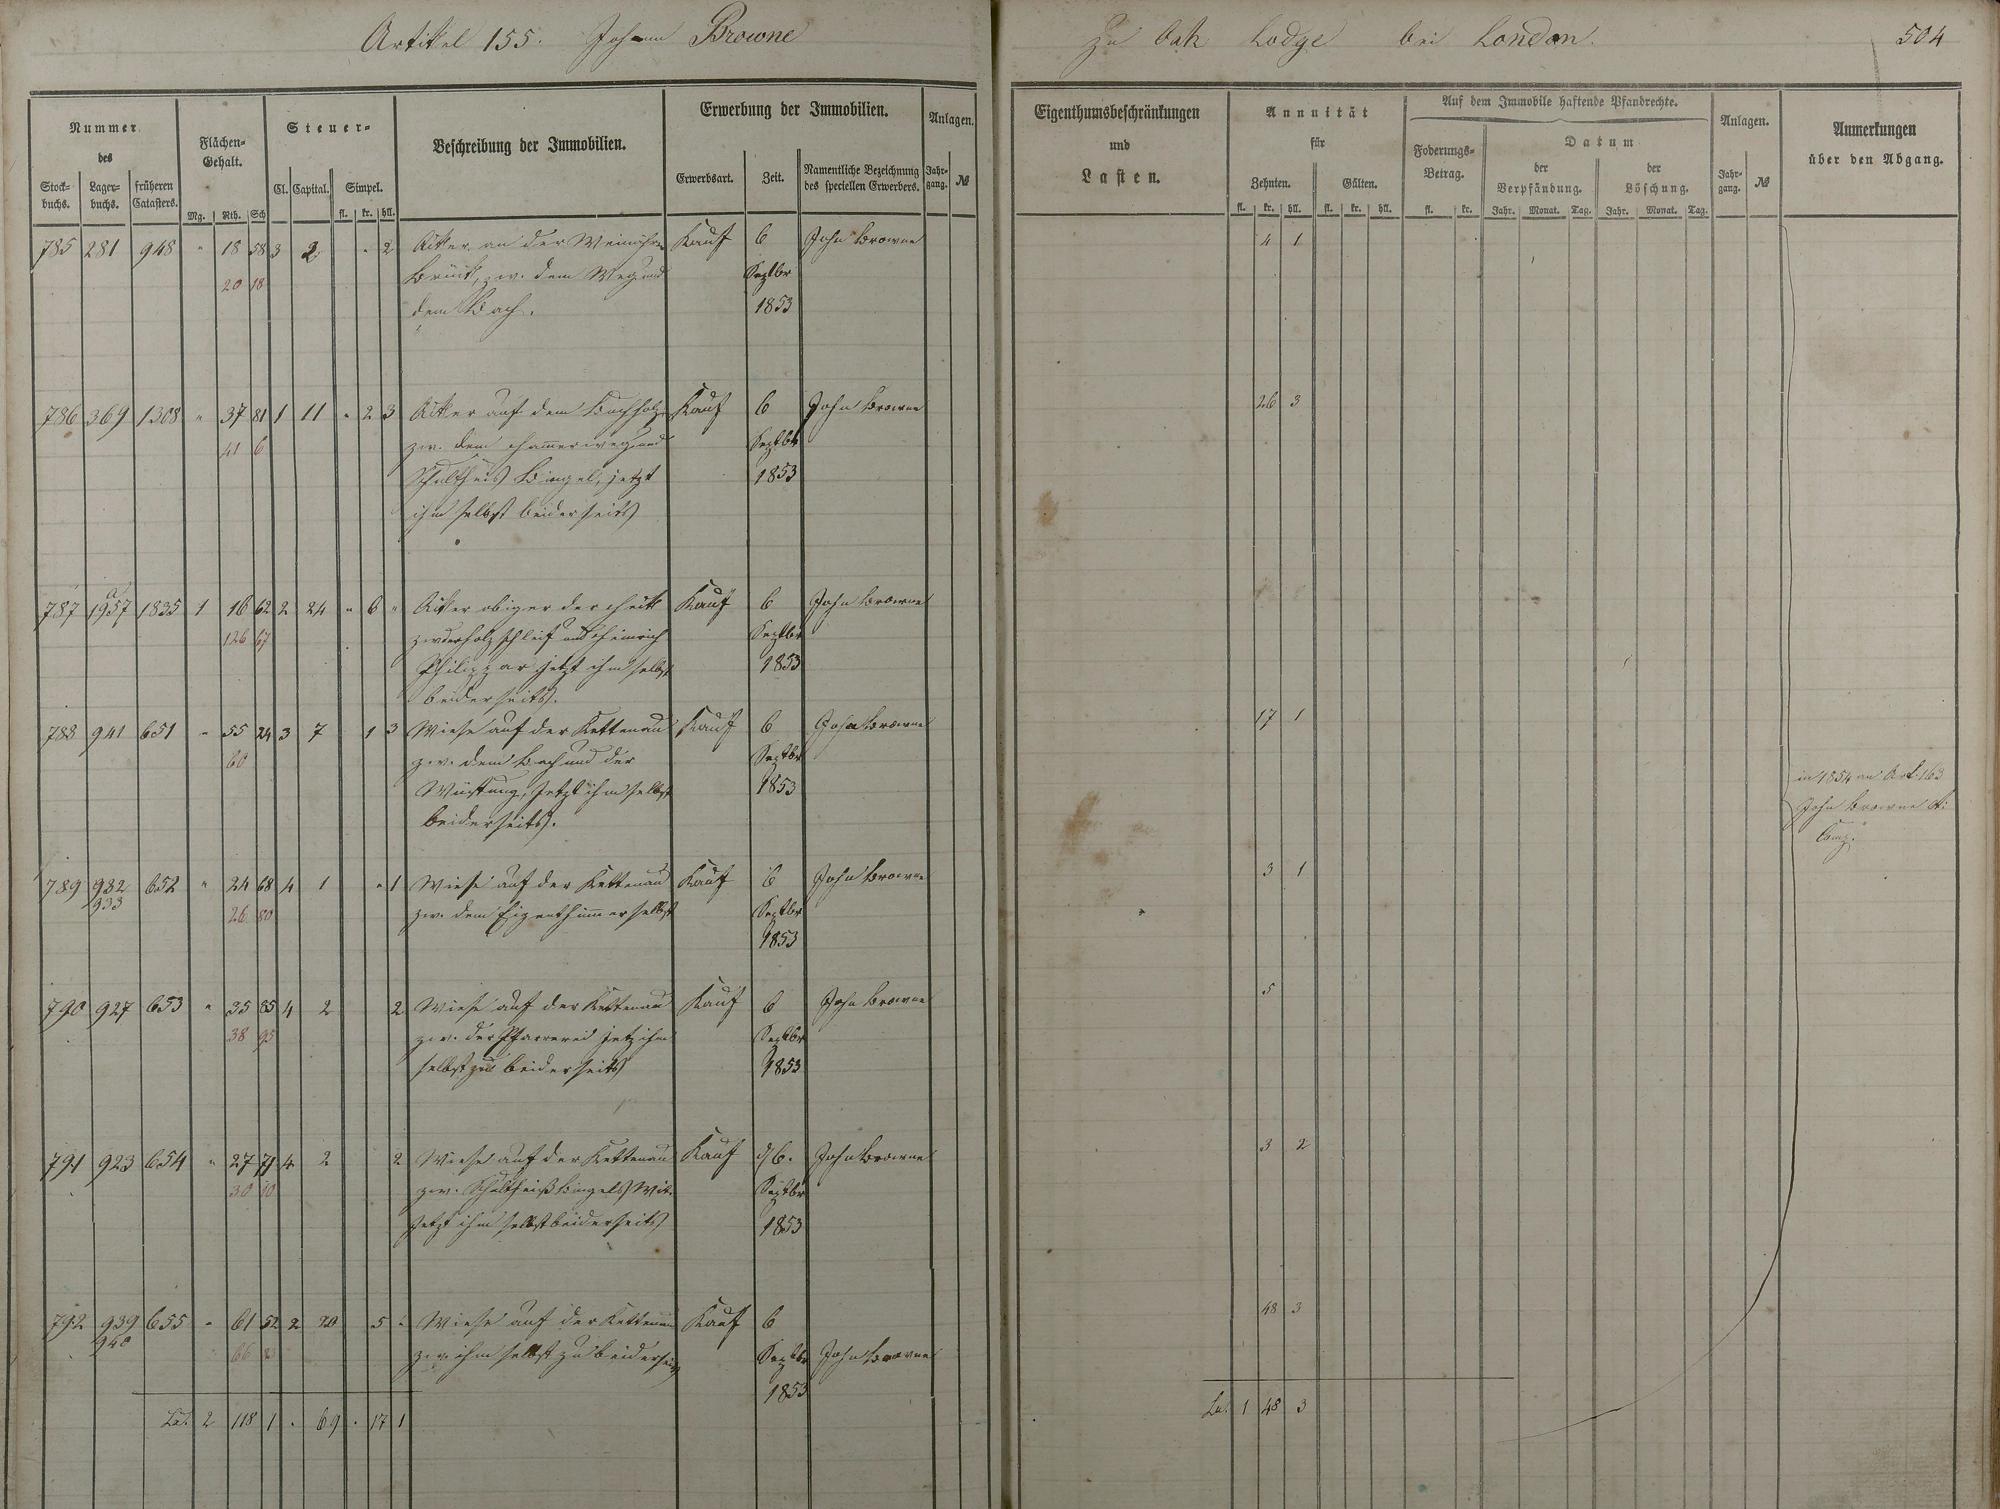 Artikel 155. Johann Browne
Nummer
des
Stock-buchs. Lager-buchs. früheren Catasters.
Flächen-Gehalt.
Mg. Rth. Sch
Steuer-
Cl. Capital. Simpel.
fl. kr. hll.
Beschreibung der Immobilien.
Erwerbung der Immobilien.
Erwerbsart. Zeit. Namentliche Bezeichnung des speciellen Erwerbers.
Anlagen.
Jahr-gang. №
785 281 948 " 18 58 3 2 " 2 Acker an der Brück, zw. dem Weg und dem Bach. Kauf 6 Septbr 1853 John Browne
20 18
786 369 1308 " 37 81 1 11 " 2 3 Acker auf dem Buchholz zw. dem Hamerweg und Schultheis Bingel, jetzt ihm selbst beiderseits Kauf 6 Septbr 1853 John Browne
41 6
787 1957 a 1835 1 16 62 2 24 " 6 " Acker obig der zw. der Holzschleif und Heinrich Philippar jetzt ihm selbst beiderseits. Kauf 6 Septbr 1853 John Browne
126 67
788 941 651 " 55 24 3 7 1 3 Wiese auf der Kettenau zw. dem Bach und der Wüstung, jetzt ihm selbst beiderseits. Kauf 6 Septbr 1853 John Browne
60
789 932 933 652 " 24 68 4 1 " 1 Wiese auf der Kettenau zw. dem Eigenthümer selbst Kauf 6 Septbr 1853 John Browne
26 80
790 927 653 " 35 85 4 2 2 Wiese auf der Kettenau zw. der Pfarrerei jetz ihm selbst zu beiderseits Kauf 6 Septbr 1853 John Browne
38 95
791 923 654 " 27 71 4 2 2 Wiese auf der Kettenau zw. Schultheiß Bingels Wit. jetzt ihm selbst beiderseits Kauf d/6. Septbr 1853 John Browne
30 10
792 939 940 655 " 61 52 2 20 5 " Wiese auf der Kettenau zw. ihm selbst zu beiderseits Kauf 6 Septbr 1853 John Browne
66
Lat. 2 118 1 . 69 . 17 1
Zu Oak Lodge bei London. 504
Eigenthumsbeschränkungen
und
Lasten.
Annuität
für
Zehnten. Gülten.
fl. kr. hll. fl. kr. hll.
Auf dem Immobile haftende Pfandrechte.
Foderungs-Betrag.
fl. kr.
Datum
der Verpfändung. der Löschung.
Jahr. Monat. Tag. Jahr. Monat. Tag.
Anlagen.
Jahr-gang. №
Anmerkungen
über den Abgang.
4 1
26 3
17 1
in 1854 an Art. 163
John Browne &
Comp.
3 1
5
3 2
48 3
Lat. 1 48 3